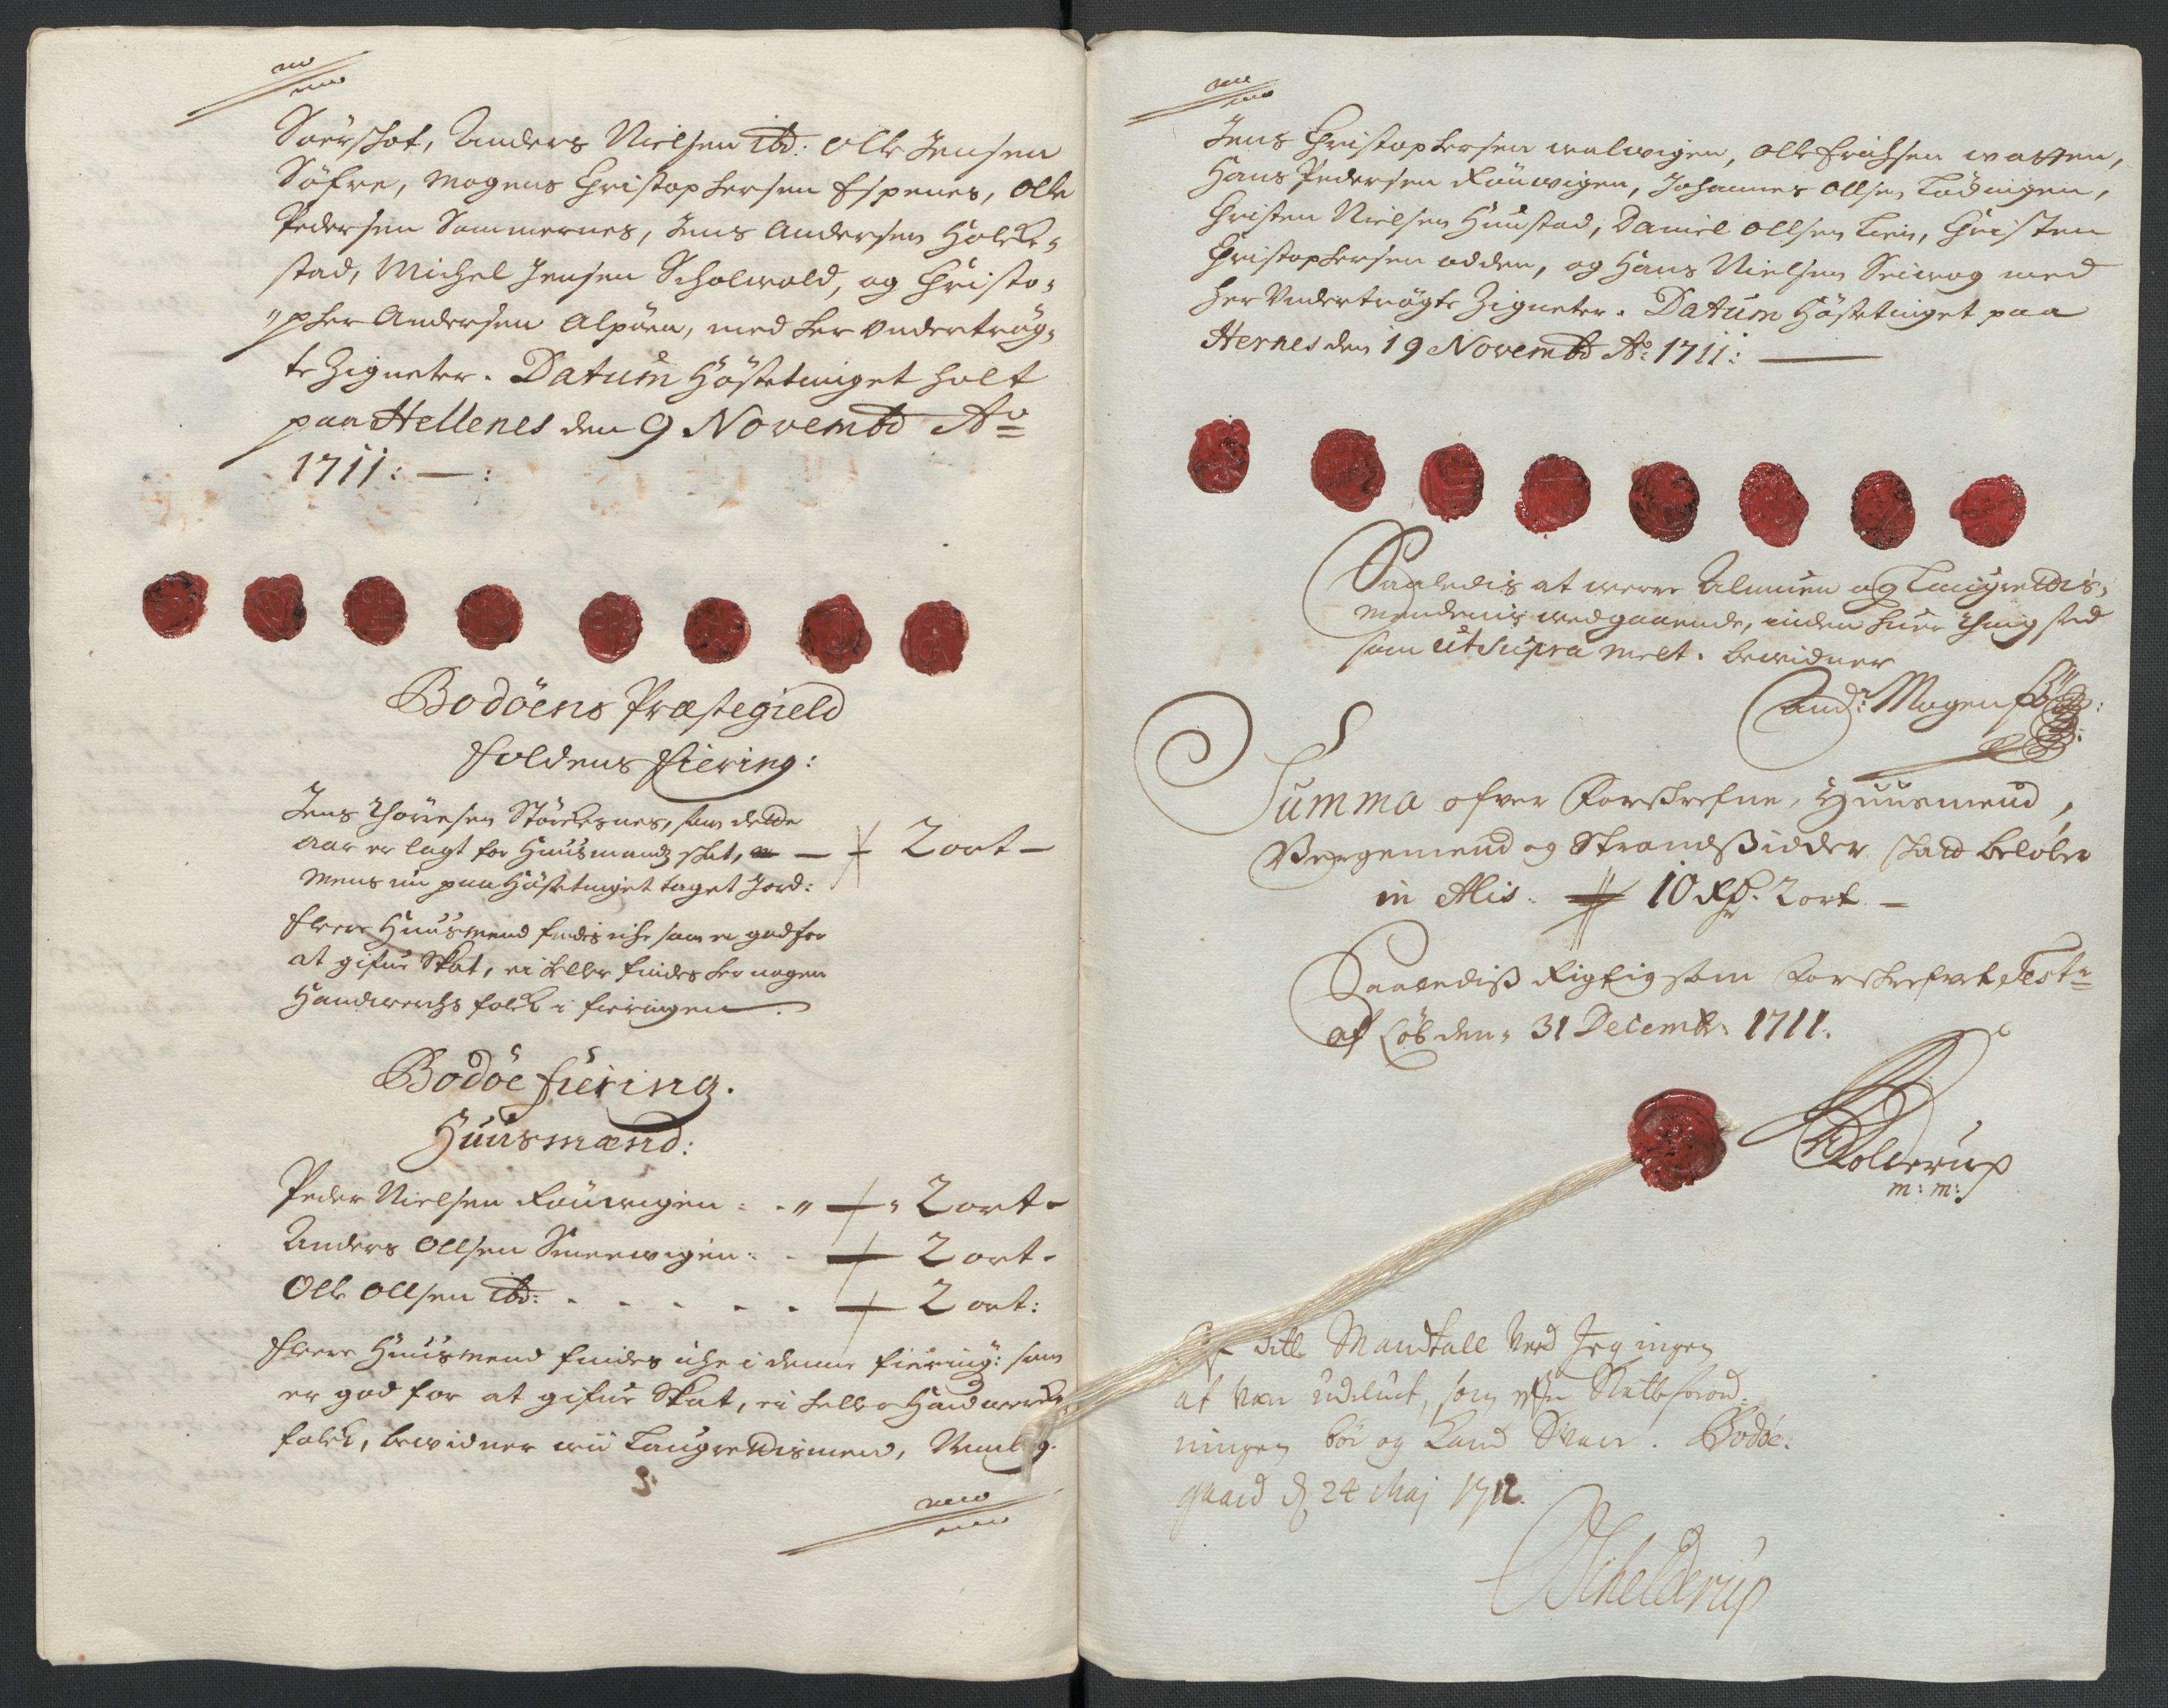 Anders Nielsen ibd: Olle Jensen
Søfre, Mogens Christophersen Espenes, Olle
Pedersen Sommernes, Jens Andersen Holke-
stad, Michel Jensen Scholvold, og Christo-
"pher Andersen Alpøen, med her undertrøg-
te Zigneter. Datum Høstetinget holt
paa Hellenes den 9 Novembd Ao
1711: — :
Bodøens Præstegield
Foldens Fiering:
Jens Størkesnes, som dette
Aar er lagt for Huusmands skat, — 2 ort —
Mens nu paa Høstetinget taget Jord:
Flere Huusmend findes iche som er god for
at gifue Skat, ei heller findes her nogen
Handverchs folck i fieringen.
Bodøe fiering.
Huusmænd:
Peder Nielsen Køuvigen: . " — " 2 ort -
Anders Ollsen Smeevigen: . — 2 ort -
Olle Ollsen ibd: . . . . . — 2 ort:
Flere Huusmend findes iche i denne fiering: som
er god for at gifue Skat, ei heller Handverchs
folck, bevidner vii Laugrettismend, Nemlig.
Jens Christophersen Valvigen, Olle Erichsen Vatten,
Hans Pedersen Køuvigen, Johannes Ollsen Lødingen,
Christen Nielsen Huustad, Daniel Ollsen Lein, Christen
Christophersen Odden, og Hans Nielsen Seivog med
her Undertrøgte Zigneter. Datum Høstetinget paa
Hernes den 19 Novembd Ao: 1711: —
Saaledis at were Almuen og Laugrettis-
mendenis vedgaaende, inden huer Thing sted
som ut supra melt. bevidner
And: Mogens
Summa ofver Forskrefne, Huusmend,
Wergemend og Strandssidder skatt beløber
in Alis. 10 Rd. 2 ort —
Saalediss Rigtig som Forskrefvet Test:
af Løb den 31 Decembr: 1711.
Tolderup
m: m:
dette Mandtall Ved Jeg ingen
at være udeluct, som efter Skatte forord-
ningen bør og Kand Svare. Bodøe-
gaard d 24 Maj 1712.
Schelderup